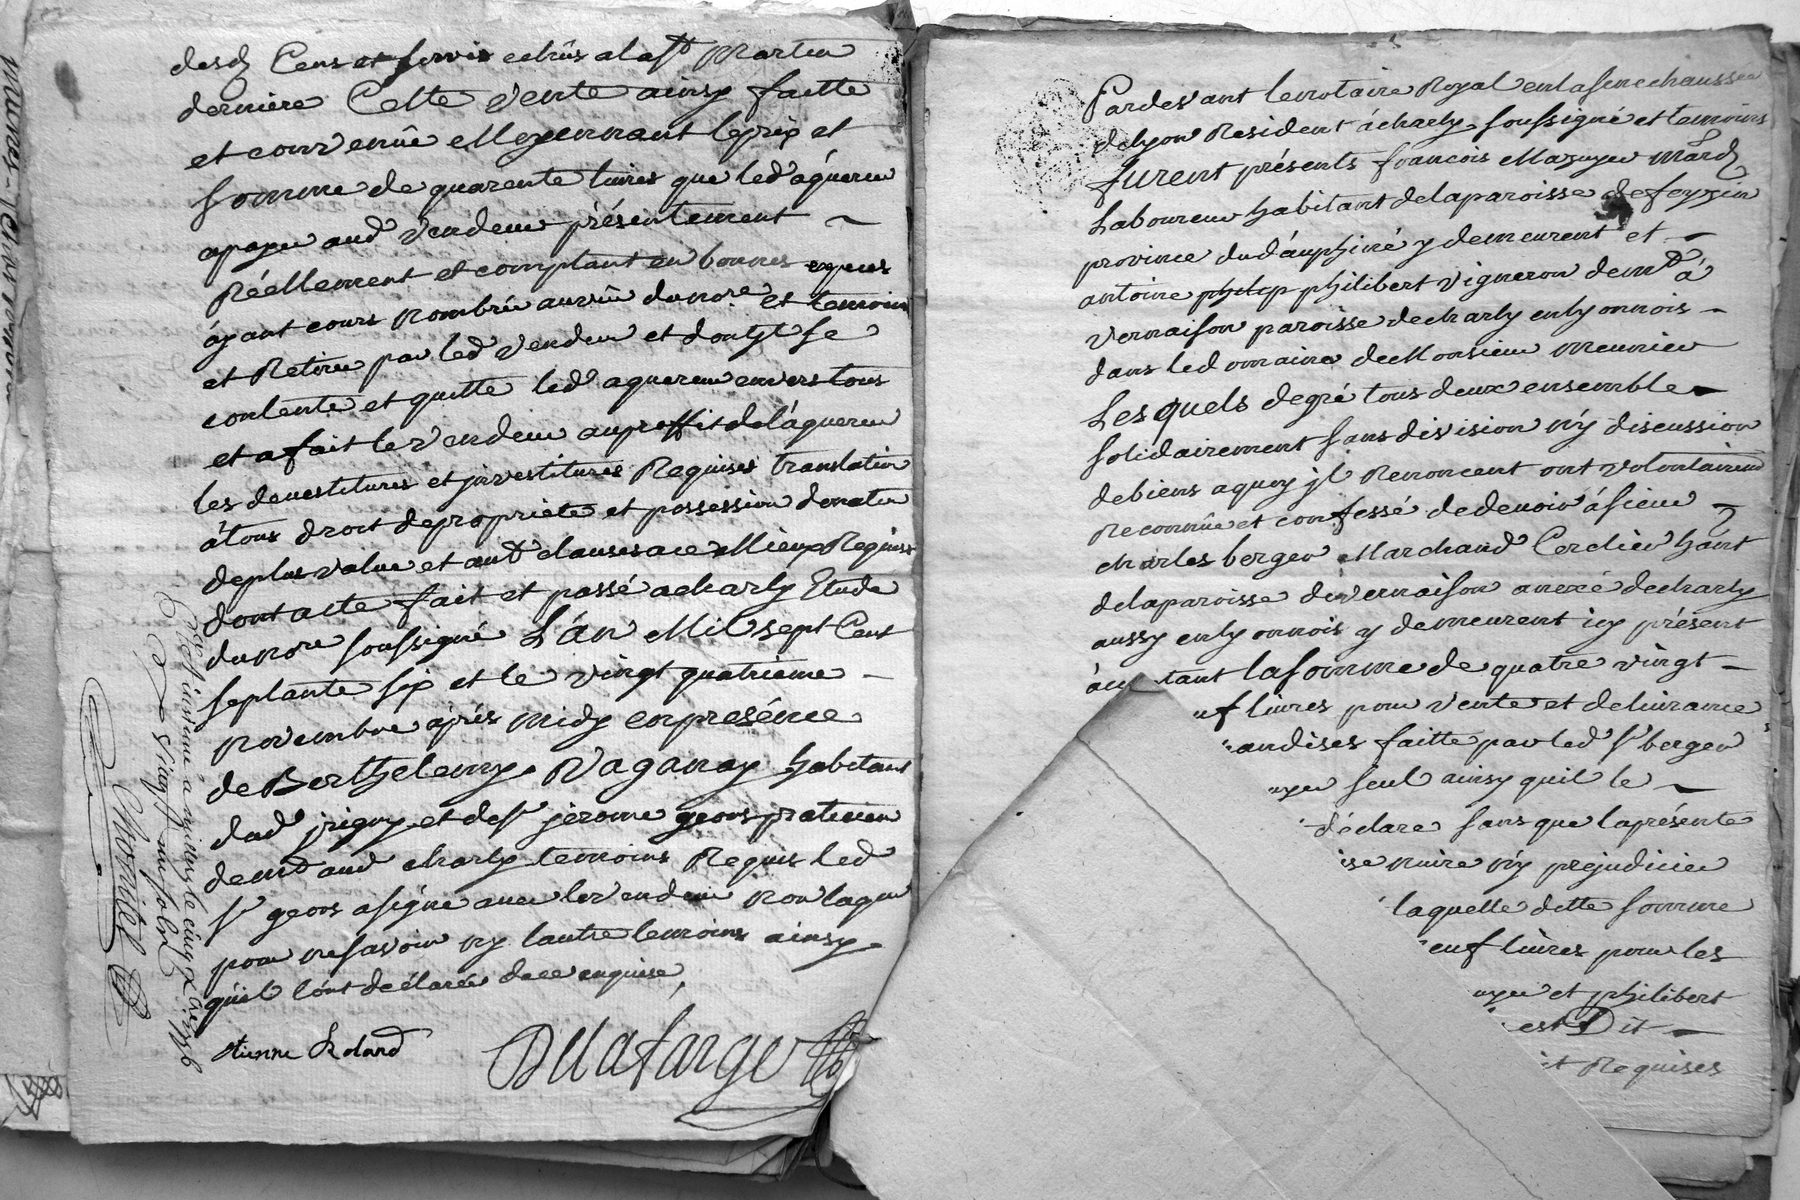 desd Cens et servis echûs a la st Martin
derniere Cette vente ainsy faitte
et convenûe Moyennant le prix et
somme de quarente livres que led aquereur
a payé aud vendeur présentement
Réellement et comptant en bonnes especes
ayant cours nombrée au vû du nore et temoins
et Retirée par led vendeur et dont jl se
contente et quitte led aquereur envers tous
et a fait le vendeur au proffit de l'aquereur
les devestitures et jnvestitures Requises translation
â tous droit de propriete et possession donation
de plus value et autt clauses a ce Mieux Requises
dont acte fait et passé a charly Etude
du nore soussigné L'án Mil sept Cent
septante six et le vingt quatrieme
novembre apres midy en presénce
de Berthelemy Vaganay habitant
dud jrigny et de sr jerome geoos praticien
demt aud charly temoins Requis led
sr geoos a signé avec le vendeur non laqur
pour ne savoir ny lautre temoins ainsy
quil l'ont declarée de ce enquise
étienne Roland
Delafarge
le cinq Xbre 1776
Chorniel
Par devant le notaire Royal en la senechaussée
de lyon Resident á charly soussigné et temoins
furent présents francois Mazuyer mard
Laboureur habitant de la paroisse de feyzin
province du dáuphiné y demeurent et
antoine philip philibert vigneron demt á
vernaison paroisse de charly en lyonnois
dans le domaine de Monsieur meunier
Les quels de gré tous deux ensemble
solidairement sans division n'y discussion
de biens a quoy jl Renoncent ont volontairemt
Reconnûe et confessé de devoir á sieur
charles berger Marchand Cerclier habt
de la paroisse de vernaison annexé de charly
aussy en lyonnois y demeurent icy présent
ácceptant la somme de quatre vingt
livres pour vente et delivrance
faitte par led sr berger
seul ainsy quil le
déclare sans que la présente
nuire n'y prejudicier
laquelle ditte somme
livres pour les
et philibert
est Dit
Requises